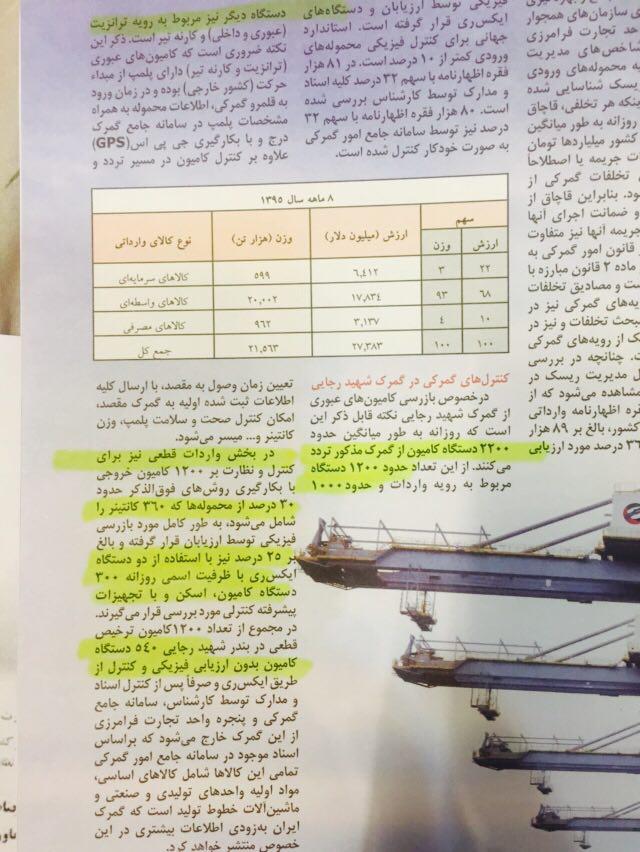 سازمان‌های همجوار
حد تجارت فرامرزی
اخص‌های مدیریت
ه محموله‌های ورودی
یسک شناسایی شده
ینکه هر تخلفی، قاچاق
روزانه به طور میانگین
کشور میلیاردها تومان
ت جریمه یا اصطلاحاً
تخلفات گمرکی از
ود. بنابراین قاچاق از
و ضمانت اجرای آنها
جریمه آنها نیز متفاوت
قانون امور گمرکی به
ماده ۲ قانون مبارزه با
ست و مصادیق تخلفات
یه‌های گمرکی نیز در
مبحث تخلفات و نیز در
ک از رویه‌های گمرکی
ت. چنانچه در بررسی
ل مدیریت ریسک در
مشاهده می‌شود که از
ره اظهارنامه وارداتی
کشور، بالغ بر ۸۹ هزار
۳۶ درصد مورد ارزیابی
فیزیکی توسط ارزیابان و دستگاه‌های
ایکس‌ری قرار گرفته است. استاندارد
جهانی برای کنترل فیزیکی محموله‌های
ورودی کمتر از ۱۰ درصد است. در ۸۱ هزار
فقره اظهارنامه با سهم ۳۲ درصد کلیه اسناد
و مدارک توسط کارشناس بررسی شده
است. ۸۰ هزار فقره اظهارنامه با سهم ۳۲
درصد نیز توسط سامانه جامع امور گمرکی
به صورت خودکار کنترل شده است.
دستگاه دیگر نیز مربوط به رویه ترانزیت
(عبوری و داخلی) و کارنه تیر است. ذکر این
نکته ضروری است که کامیون‌های عبوری
(ترانزیت و کارنه تیر) دارای پلمپ از مبداء
حرکت (کشور خارجی) بوده و در زمان ورود
به قلمرو گمرکی، اطلاعات محموله به همراه
مشخصات پلمپ در سامانه جامع گمرک
درج و با بکارگیری جی پی اس(GPS)
علاوه بر کنترل کامیون در مسیر تردد و
۸ ماهه سال ۱۳۹۵
نوع کالای وارداتی وزن (هزار تن) ارزش (میلیون دلار) سهم
وزن ارزش
کالاهای سرمایه‌ای ۵۹۹ ۶,۴۱۲ ۳ ۲۲
کالاهای واسطه‌ای ۲۰,۰۰۲ ۱۷,۸۳۴ ۹۳ ۶۸
کالاهای مصرفی ۹۶۲ ۳,۱۳۷ ۴ ۱۰
جمع کل ۲۱,۵۶۳ ۲۷,۳۸۳ ۱۰۰ ۱۰۰
کنترل‌های گمرکی در گمرک شهید رجایی
درخصوص بازرسی کامیون‌های عبوری
از گمرک شهید رجایی نکته قابل ذکر این
است که روزانه به طور میانگین حدود
۲۲۰۰ دستگاه کامیون از گمرک مذکور تردد
می‌کنند. از این تعداد حدود ۱۲۰۰ دستگاه
مربوط به رویه واردات و حدود ۱۰۰۰
تعیین زمان وصول به مقصد، با ارسال کلیه
اطلاعات ثبت شده اولیه به گمرک مقصد،
امکان کنترل صحت و سلامت پلمپ، وزن
کانتینر و... میسر می‌شود.
در بخش واردات قطعی نیز برای
کنترل و نظارت بر ۱۲۰۰ کامیون خروجی
با بکارگیری روش‌های فوق‌الذکر حدود
۳۰ درصد از محموله‌ها که ۳۶۰ کانتینر را
شامل می‌شود، به طور کامل مورد بازرسی
فیزیکی توسط ارزیابان قرار گرفته و بالغ
بر ۲۵ درصد نیز با استفاده از دو دستگاه
ایکس‌ری با ظرفیت اسمی روزانه ۳۰۰
دستگاه کامیون، اسکن و با تجهیزات
پیشرفته کنترلی مورد بررسی قرار می‌گیرند.
در مجموع از تعداد ۱۲۰۰کامیون ترخیص
قطعی در بندر شهید رجایی ۵۴۰ دستگاه
کامیون بدون ارزیابی فیزیکی و کنترل از
طریق ایکس‌ری و صرفاً پس از کنترل اسناد
و مدارک توسط کارشناس، سامانه جامع
گمرکی و پنجره واحد تجارت فرامرزی
از این گمرک خارج می‌شود که براساس
اسناد موجود در سامانه جامع امور گمرکی
تمامی این کالاها شامل کالاهای اساسی،
مواد اولیه واحدهای تولیدی و صنعتی و
ماشین‌آلات خطوط تولید است که گمرک
ایران به‌زودی اطلاعات بیشتری در این
خصوص منتشر خواهد کرد.